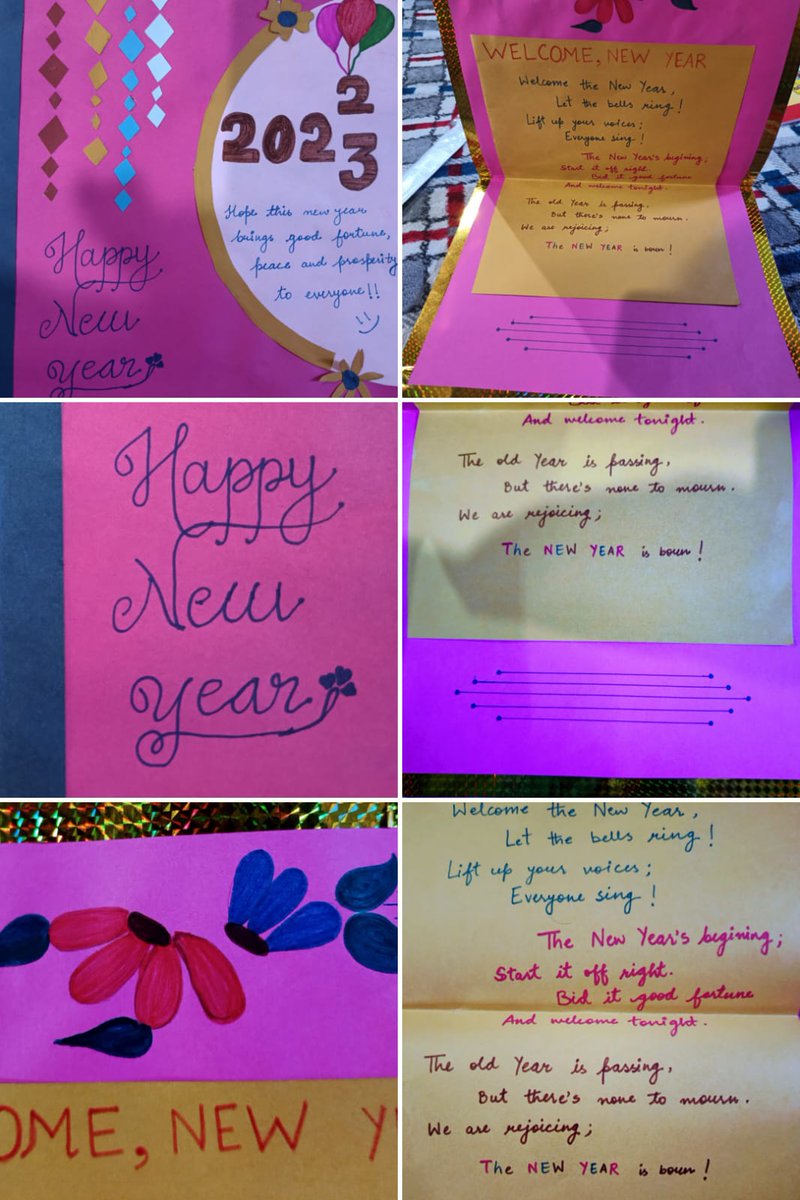 2
202
3
Hope this new year
brings good fortune,
peace and prosperity
to everyone!!
Happy
New
year
WELCOME, NEW YEAR
Welcome the New Year,
Let the bells ring!
Lift up your voices;
Everyone sing!
The New Year's begining;
Start it off right.
Bid it good fortune
And welcome tonight.
The old Year is passing,
But there's none to mourn.
We are rejoicing;
The NEW YEAR is born!
Happy
New
year
And welcome tonight.
The old Year is passing,
But there's none to mourn.
We are rejoicing;
The NEW YEAR is born!
OME, NEW Y
Welcome the New Year,
Let the bells ring!
Lift up your voices;
Everyone sing!
The New Year's begining;
Start it off right.
Bid it good fortune
And welcome tonight.
The old Year is passing,
But there's none to mourn.
We are rejoicing;
The NEW YEAR is born!